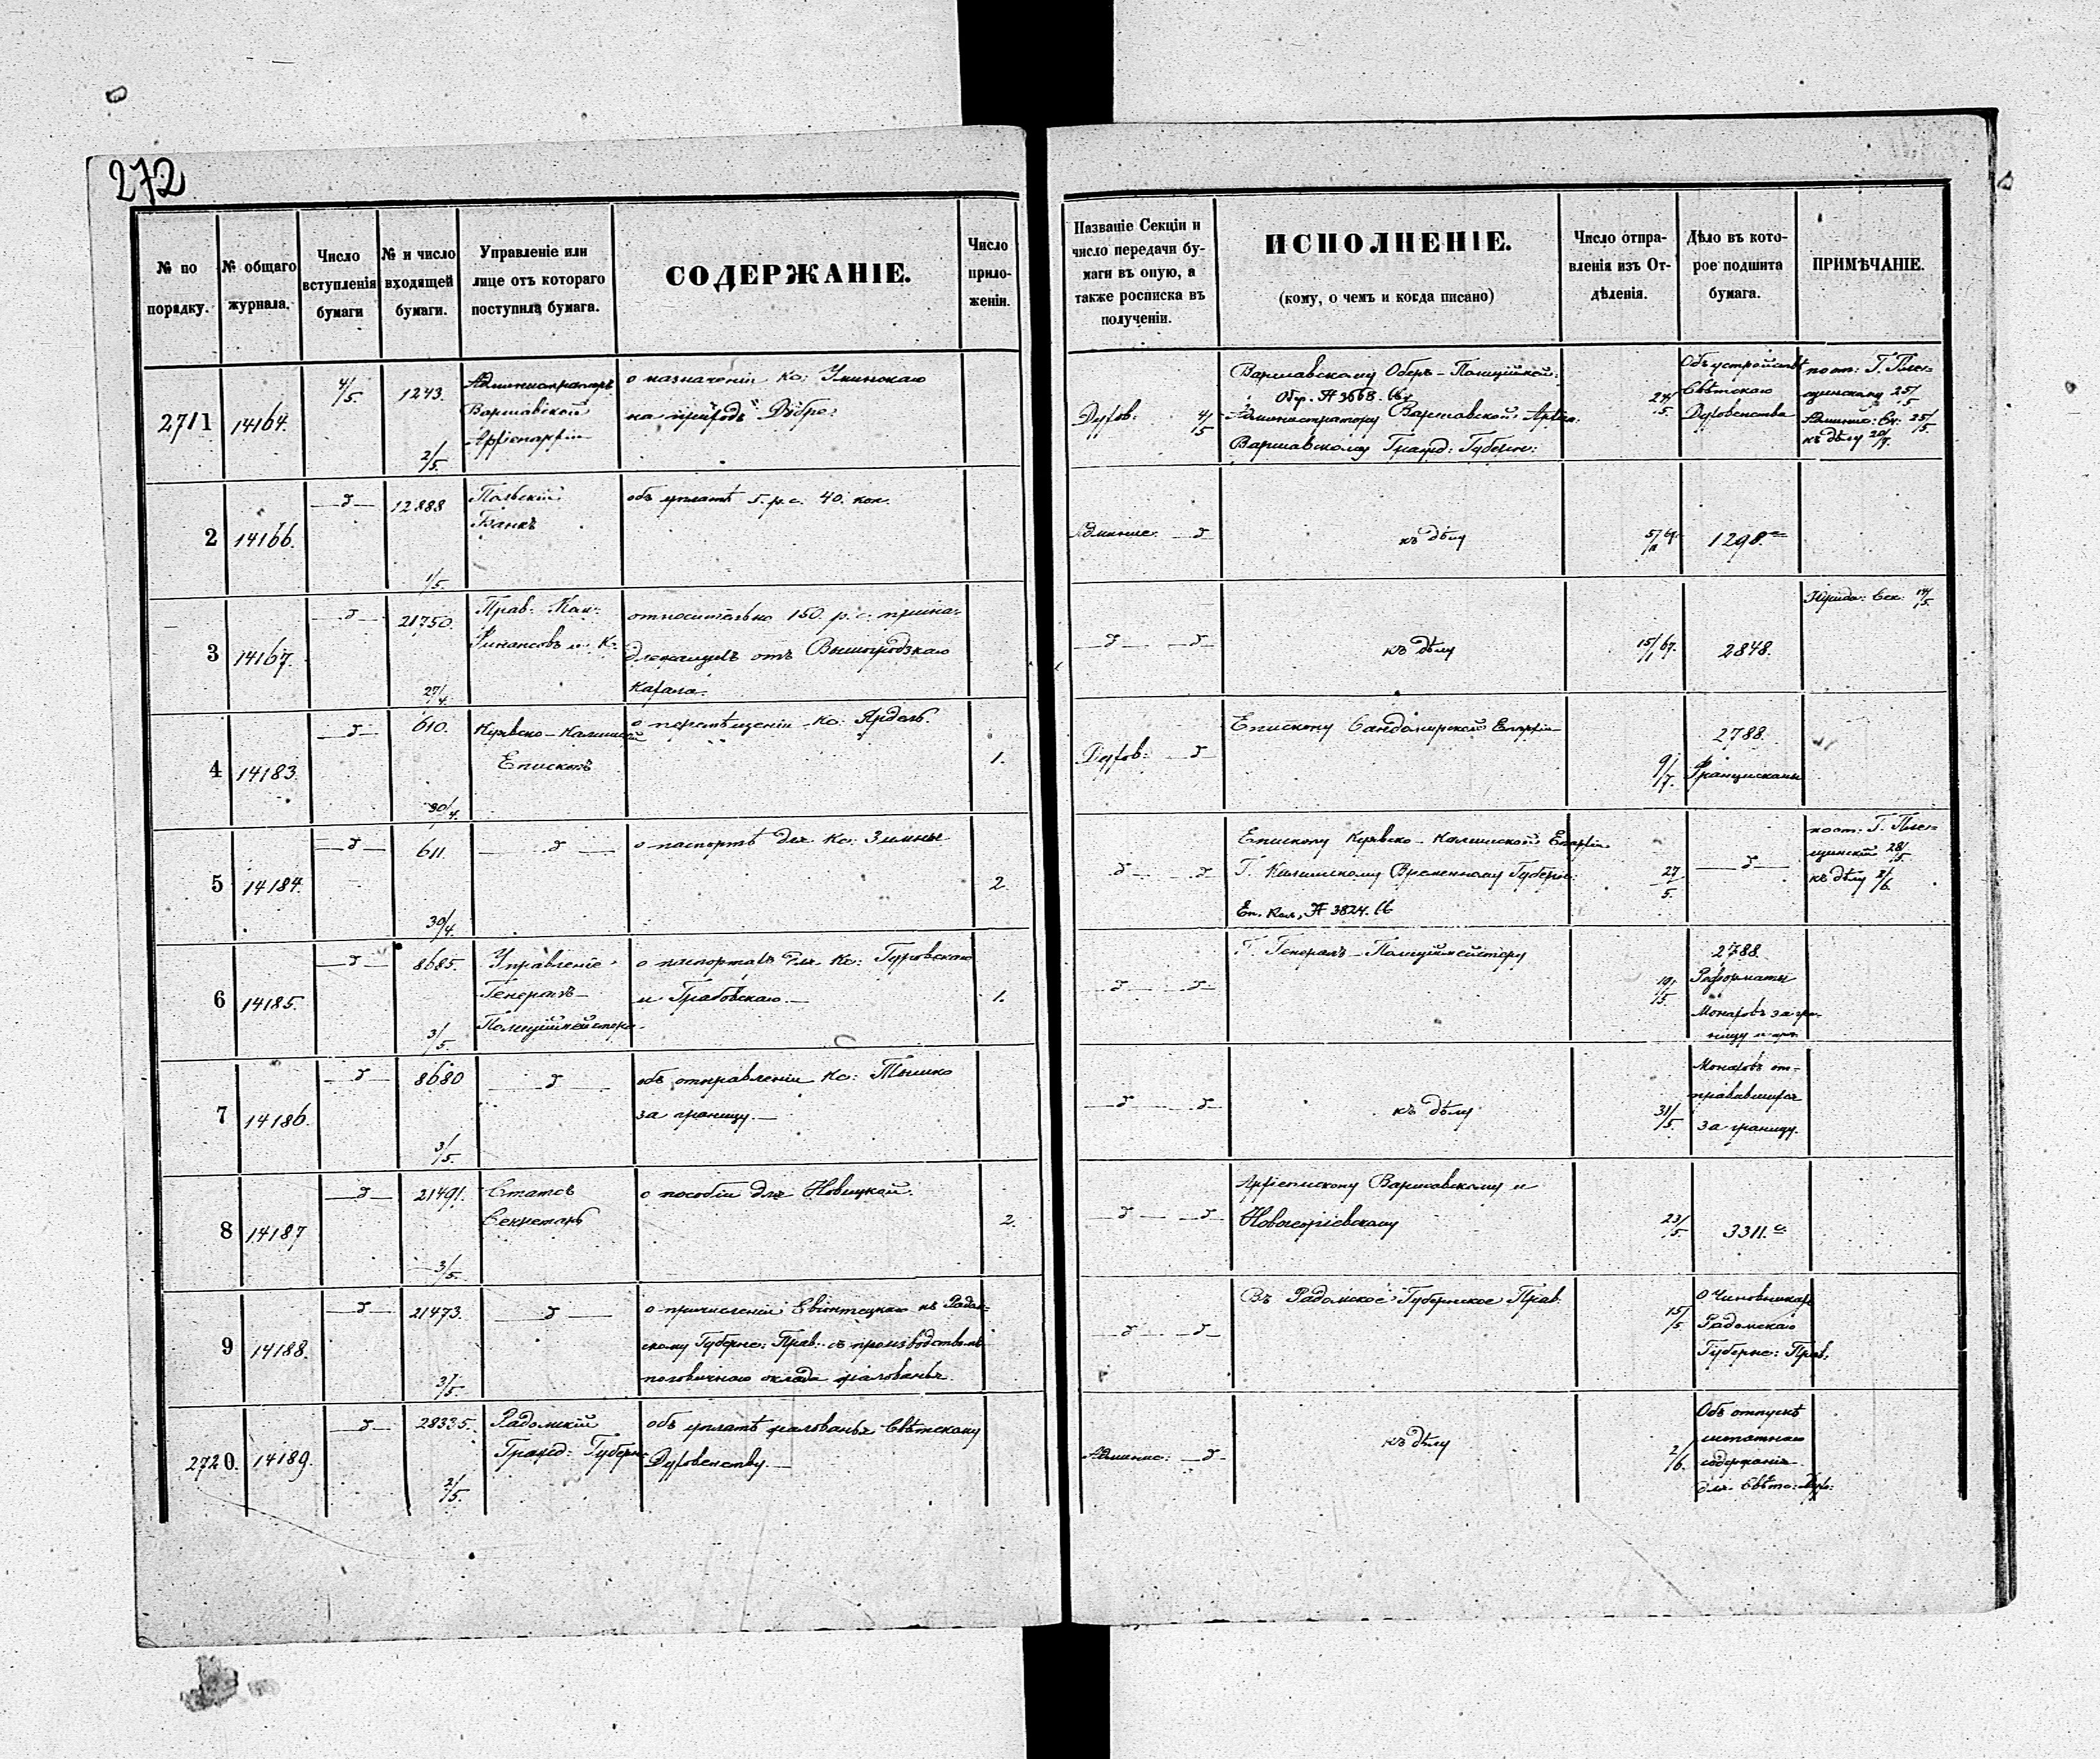 272
№ по порядку.
№ общаго журнала.
Число вступленія бумаги
№ и число входящей бумаги.
Управленіе или лице отъ котораго поступила бумага.
СОДЕРЖАНІЕ.
Число приложеніи.
Названіе Секціи и число передачи бу-
маги въ оную, а
также росписка въ
полученіи.
ИСПОЛНЕНІЕ.
(кому, о чемъ и когда писано)
Число отпра-
вленія изъ От-
дѣленія.
Дѣло въ кото-
рое подшита
бумага.
ПРИМѢЧАНІЕ.
2711
14164.
4/5.
1243.
2/5.
Администраторъ
Варшавской
Архіепархіи
о назначеніи Кс:
на приходъ Дубре:
Духов:
4/5
Варшавскому Оберъ-Полиційм:
Обр. № 3668.
Администратору Варшавской Архіеп:
Варшавскому Гражд: Губерн:
24/5.
Объ устройствѣ
Свѣтскаго
Духовенства
25/5
25/5.
къ дѣлу
2
14166.
12888
1/5.
Польскій
Банкъ
объ уплатѣ 5. р. с. 40. коп.
Админис.
къ дѣлу
1298.
3
14167.
21750.
27/4.
Прав: Ком:
Финансовъ и К:
относительно 150. р. с. прина-
длежащихъ отъ Вышогродзкаго
Кагала.
къ дѣлу
15/1 67.
2848.
Юридо: Сек: 14/5.
4
14183.
610.
30/4.
Куявско-Калишскій
Епископъ
о перемѣщеніи Кс: Ярдель.
1.
Духов:
Епископу Сандомирской Епархіи
9/7.
2788.
Францискане
5
14184.
611.
30/4.
о паспортѣ для Кс: Зимны
2.
Епископу Куявско-Калишской Епархіи
Г. Калишскому Временному Губерн:
Еп. Кал. № 3824.
27/5.
къ дѣлу
6
14185.
8685.
3/5.
Управленіе
Генералъ-
Полиційместера
о паспортахъ для Кс: Гуровскаго
и Грабовскаго.
1.
Г. Генералъ-Полиційместеру
19/5
2788.
Реформаты
Монаховъ за гра-
ницу
7
14186.
8680
3/5.
объ отправленіи Кс: Тышко
за границу.
къ дѣлу
31/5.
Монаховъ от-
правившихся
за границу.
8
14187
21491.
3/5.
Статсъ
Секретарь
о пособіи для Новицкой.
2.
Архіепископу Варшавскому и
Новогеоргіевскому
23/5.
3311.
9
14188.
21473.
3/5.
о причисленіи Свіонтецкаго къ Радом-
скому Губерн: Прав: съ производствомъ
половиннаго оклада жалованья.
Въ Радомское Губернское Прав.
15/5
О Чиновникахъ
Радомскаго
Губерн: Прав.
2720.
14189.
28335.
2/5.
Радомскій
Гражд: Губерн:
объ уплатѣ жалованья Свѣтскому
Духовенству.
Админис:
къ дѣлу
2/6.
Объ отпускѣ
штатнаго
содержанія
для Свѣтс: Духо: